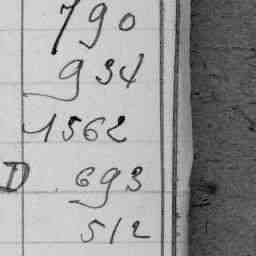 790
934
1562
D 693
512